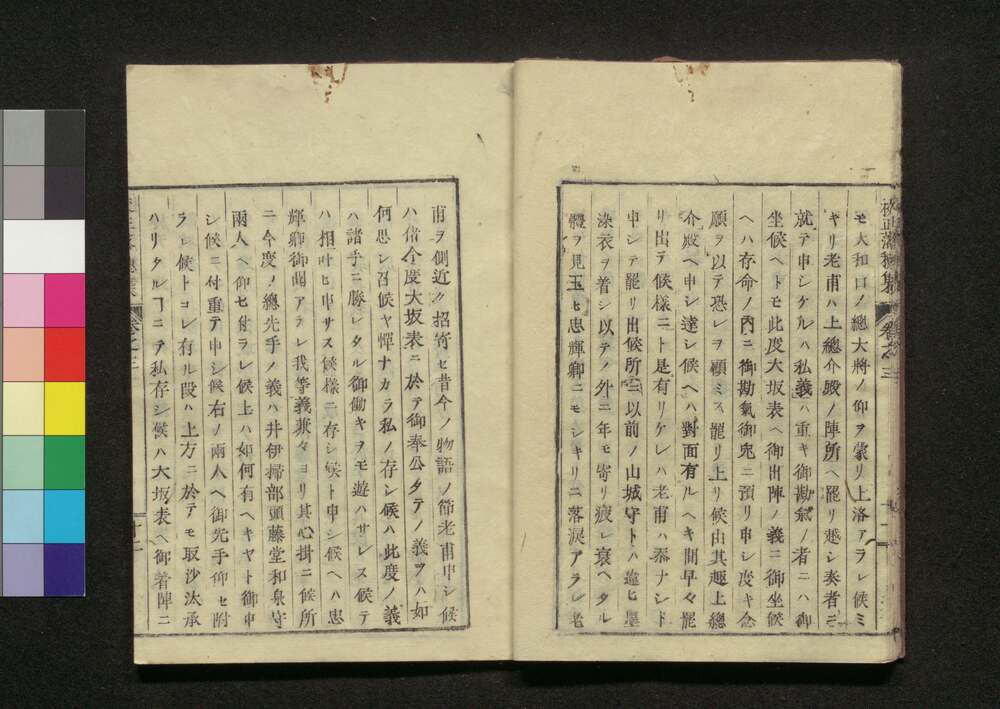 モ大和口ノ總大將ノ仰ヲ蒙リ上洛アラレ候ミ
キリ老甫ハ上總介殿ノ陣所ヘ罷リ越シ奏者ニ
就テ申シケルハ私義ハ重キ御勘氣ノ者ニハ御
坐候ヘトモ此度大坂表ヘ御出陣ノ義ニ御坐候
ヘハ存命ノ內ニ御勘氣御免ニ預リ申シ度キ念
願ヲ以テ恐レヲ顧ミス罷リ上リ候由其趣上總
介殿ヘ申シ達シ候ヘハ對面有ルヘキ間早々罷
リ出テ候樣ニト是有リケレハ老甫ハ忝ナシト
申シテ罷リ出候所ニ以前ノ山城守トハ違ヒ墨
染衣ヲ着シ以テノ外ニ年モ寄リ疲レ衰ヘタル
體ヲ見玉ヒ忠輝卿ニモシキリニ落淚アラレ老
甫ヲ側近ク招寄セ昔今ノ物語ノ節老甫申シ候
ハ偖今度大坂表ニ於テ御奉公タテノ義ヲハ如
何思シ召候ヤ憚ナカラ私ノ存シ候ハ此度ノ義
ハ諸手ニ勝レタル御働キヲモ遊ハサレス候テ
ハ相叶ヒ申サス候樣ニ存シ候ト申シ候ヘハ忠
輝卿御聞アラレ我等義兼々ヨリ其心掛ニ候所
ニ今度ノ總先手ノ義ハ井伊掃部頭藤堂和泉守
兩人ヘ仰セ付ラレ候上ハ如何有ヘキヤト御申
シ候ニ付重テ申シ候右ノ兩人ヘ御先手仰セ附
ラレ候トコレ有ル段ハ上方ニ於テモ取沙汰承
ハリタルヿニテ私存シ候ハ大坂表ヘ御着陣ニ